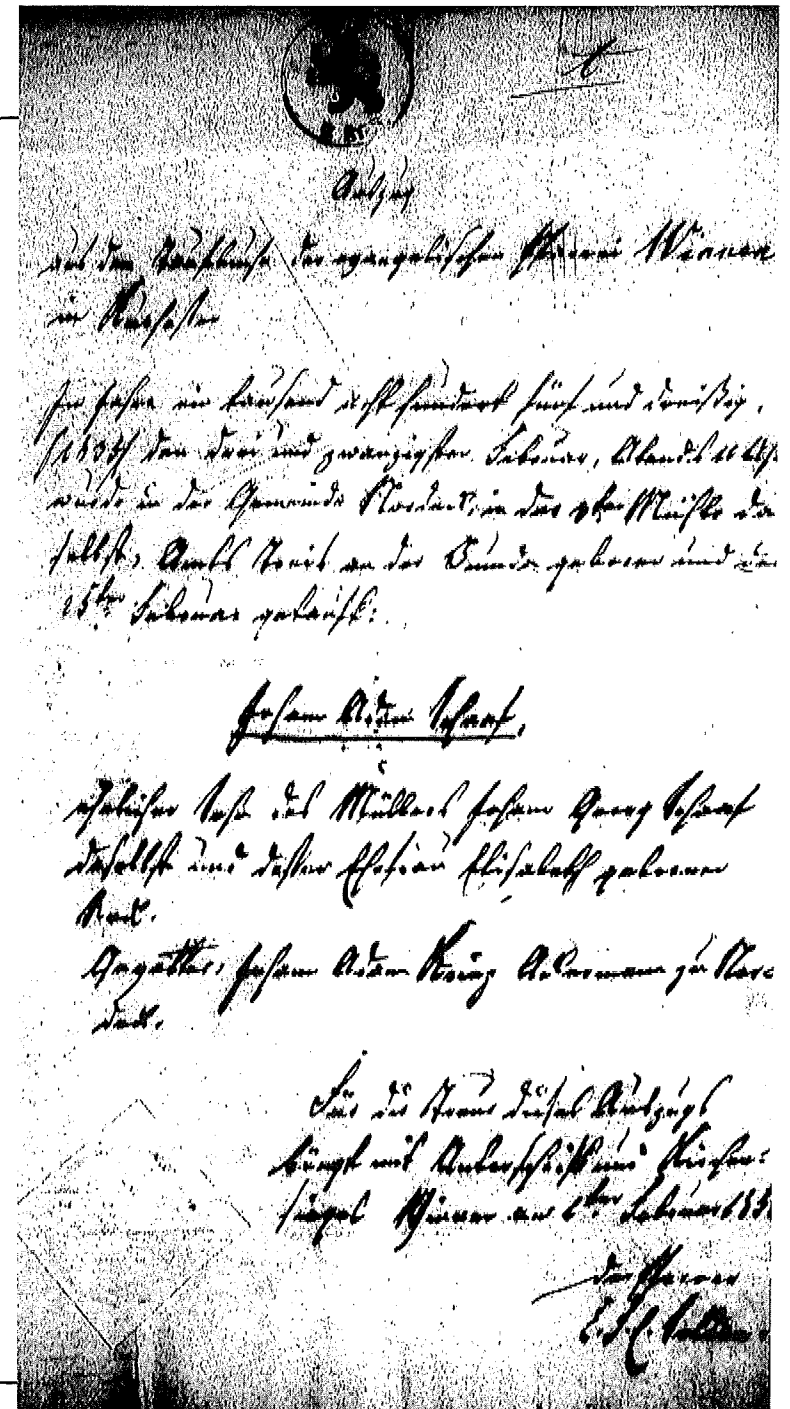 Auszug
aus dem Taufbuche der evangelischen Pfarrei Winnen
in Kurhessen
Im Jahre ein tausend acht hundert fünf und dreißig,
(1835) den drei und zwanzigsten Februar, Abends 11 Uhr
wurde in der Gemeinde Nordeck, in der Mühle da
selbst, Amts Treis an der Lumda geboren und den
25ten Februar getauft:
Johann Adam Schaaf,
ehelicher Sohn des Müllers Johann Georg Schaaf
daselbst und dessen Ehefrau Elisabeth geborner
Gegatter: Johann Adam Ackermann zu Nor=
deck.
Für die Treue dieses Auszugs
bürgt mit Unterschrift und Kirchen=
siegel Winnen am Februar
der Pfarrer